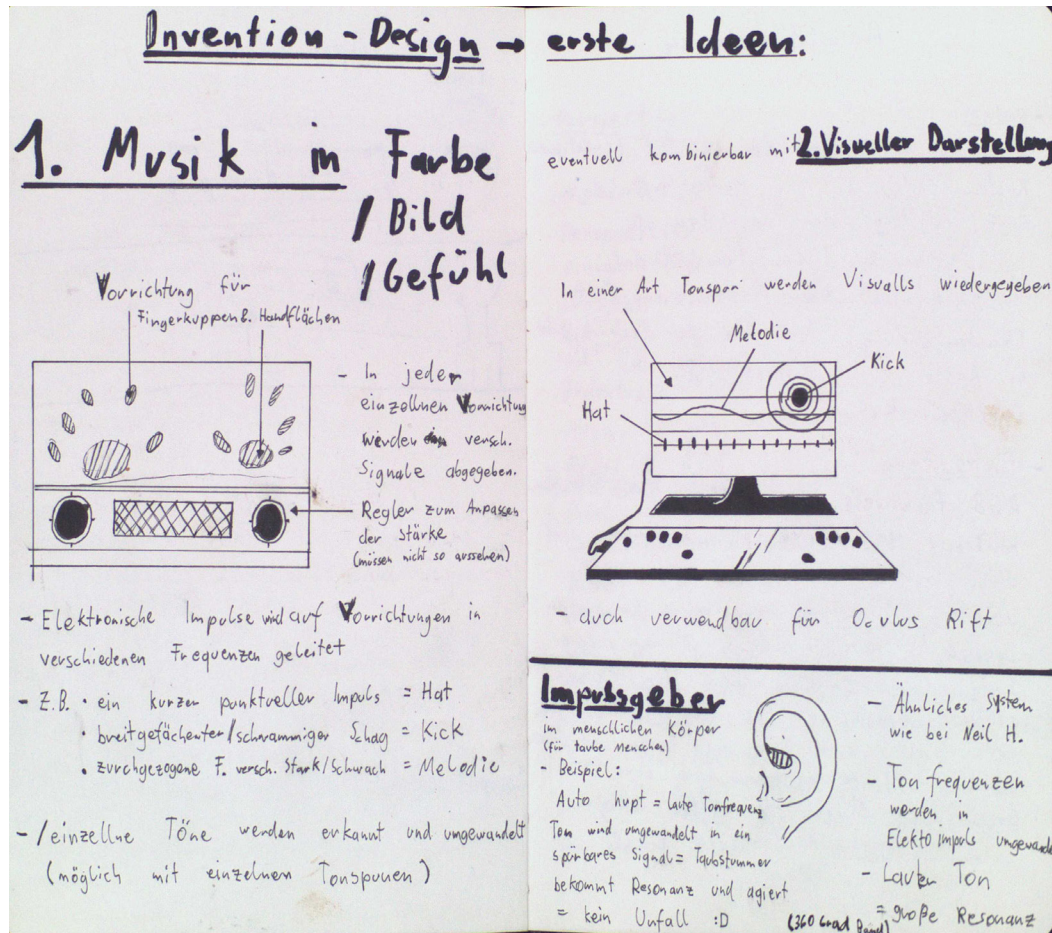 Invention - Design → erste Ideen:
1. Musik in Farbe
/ Bild
/ Gefühl
Vorrichtung für
Fingerkuppen & Handflächen
- In jeder
einzellnen Vorrichtung
werden versch.
Signale abgegeben.
- Regler zum Anpassen
der Stärke
(müssen nicht so aussehen)
- Elektronische Impulse wird auf Vorrichtungen in
verschiedenen Frequenzen geleitet
- Z.B. • ein kurzen punktueller Impuls = Hat
• breitgefächerter/schwammiger Schag = Kick
• zurchgezogene F. versch. Stark/Schwach = Melodie
- /einzellne Töne werden erkannt und umgewandelt
(möglich mit einzelnen Tonspuren)
eventuell kombinierbar mit 2. Visueller Darstellung
In einer Art Tonspur werden Visualls wiedergegeben
Melodie
Kick
Hat
- auch verwendbar für Oculus Rift
Impulsgeber
im menschlichen Körper
(für taube Menschen)
- Beispiel:
Auto hupt = laute Tonfrequenz
Ton wird umgewandelt in ein
spürbares Signal = Taubstummer
bekommt Resonanz und agiert
= kein Unfall :D
(360 Grad
- Ähnliches System
wie bei Neil H.
- Ton frequenzen
werden in
Elektoimpuls umgewande
- Lauter Ton
= große Resonanz